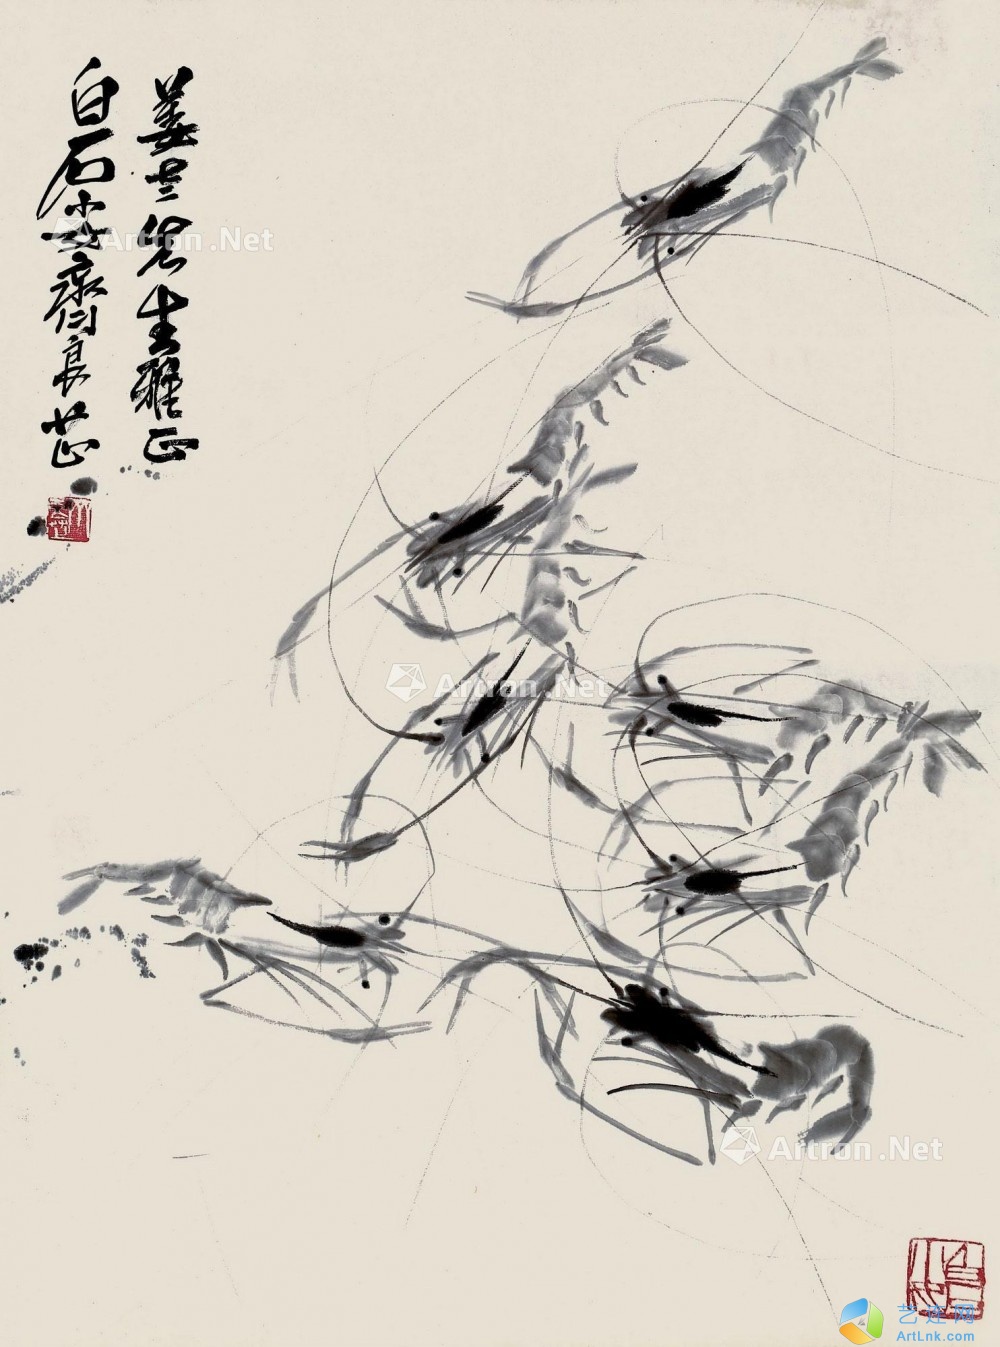 姜先生雅正
白石小女齊良芷
Artron.Net
Artron.Net
Artron.Net
艺连网
ArtLnk.com